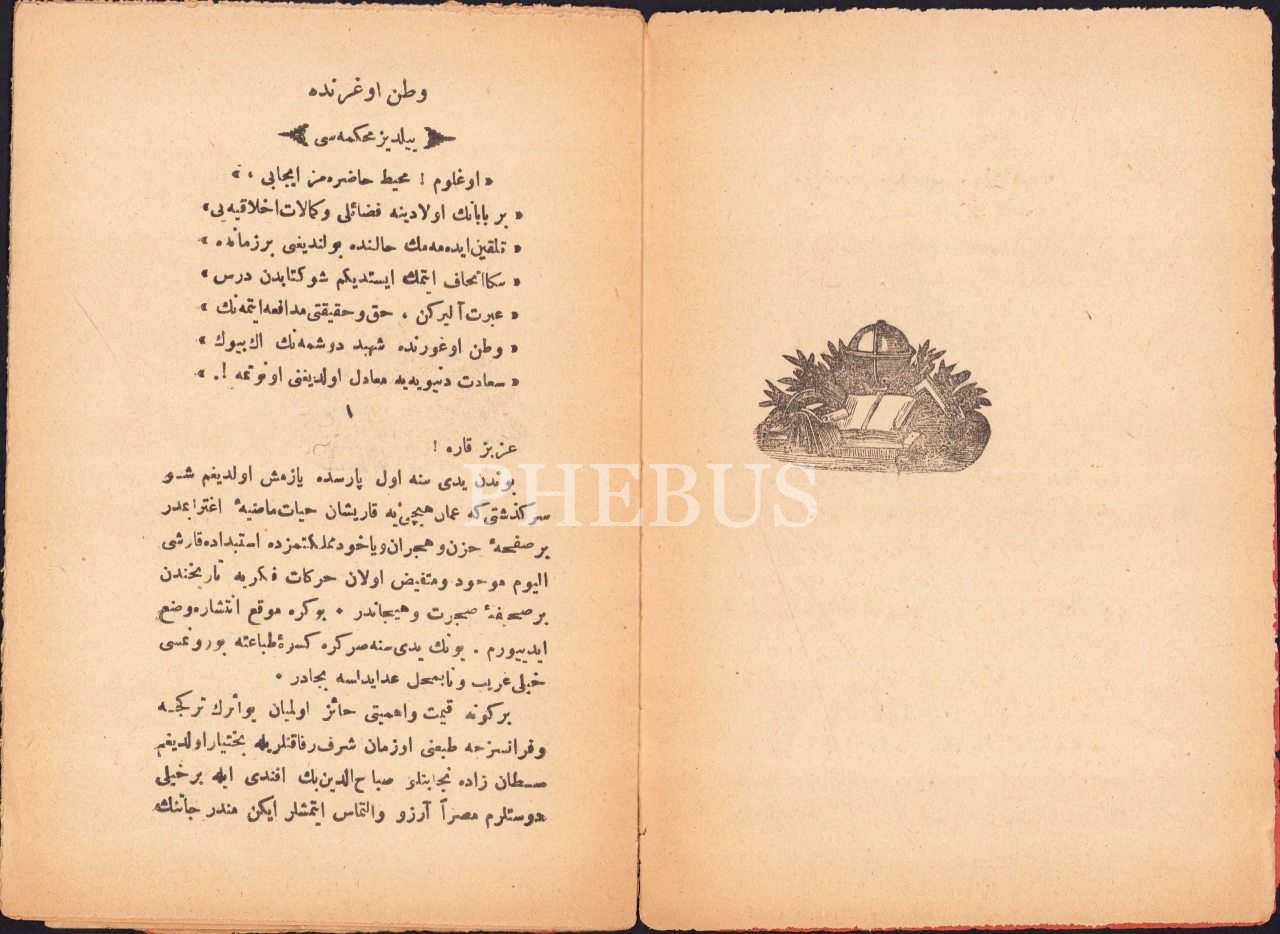 وطن اوغرنده
ييلديز محكمه‌سى
« اوغلوم ! محيط حاضره‌مز ايجابى ، »
« بر بابانك اولادينه فضائلى وكمالات اخلاقيه‌يى »
« تلقين ايده‌مه‌مك حالنده بولنديغى بر زمانده »
« سكا اتحاف ايتمك ايستديكم شو كتابدن درس »
« عبرت آليركن ، حق وحقيقتى مدافعه ايتمه‌نك »
« وطن اوغورنده شهيد دوشمه‌نك اك بيوك »
« سعادت دنيويه‌يه معادل اولديغنى اونوتمه !. »
١
عزيز قاره !
بوندن يدى سنه اول پارسده يازمش اولديغم شو
سركذشتى كه عمان هيچى‌يه قاريشان حيات ماضيۀ اغترابمدر
بر صفحۀ حزن وهجران وياخود مملكتمزده استبداده قارشى
اليوم موجود ومتفيض اولان حركات فكريه تاريخندن
بر صحيفۀ ضجرت وهيجاندر . بوكره موقع انتشاره وضع
ايدييورم . بونك يدى سنه صركره كسوۀ طباعته بورونمسى
خيلى غريب ونابمحل عد ايداسه بجادر .
بركونه قيمت واهميتى حائز اولميان بو أثرك تركجه
وفرانسزجه طبعنى اوزمان شرف رفاقتلريله بختيار اولديغم
سلطان زاده نجابتلو صباح الدين بك افندى ايله بر خيلى
دوستلرم مصراً آرزو والتماس ايتمشلر ايكن مندرجاتنك
PHEBUS